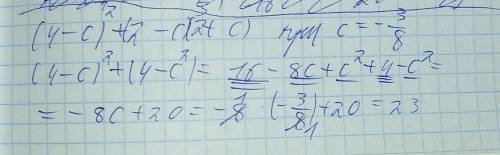 (4-c)²+(2-c)(2+c) при c = -3/8
(4-c)²+(4-c²) = 16-8c+c²+4-c² =
= -8c+20 = -8·(-3/8)+20 = 23